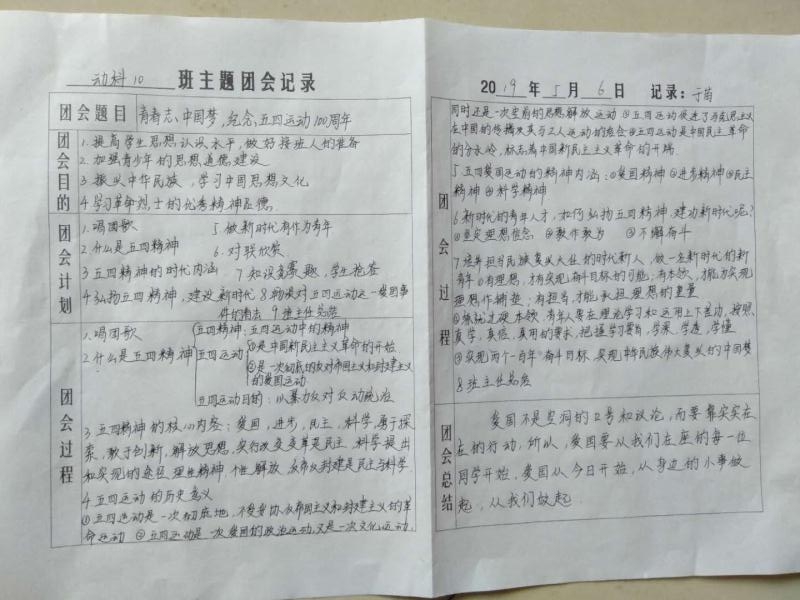 动科10 班主题团会记录
团会题目 青春志、中国梦,纪念五四运动100周年
团会目的
1.提高学生思想认识水平,做好接班人的准备
2.加强青少年的思想道德建设
3.振兴中华民族,学习中国思想文化
4.学习革命烈士的优秀精神品德
团会计划
1.唱团歌 5 做新时代有作为青年
2.什么是五四精神 6.对联欣赏
3 五四精神的时代内涵 7 知识竞赛题,学生抢答
4 弘扬五四精神,建设新时代 8 畅谈对五四运动这一爱国事
件的看法 9 班主任总结
团会过程
1.唱团歌
2.什么是五四精神
五四精神:五四运动中的精神
五四运动
①是中国新民主主义革命的开始
②是一次彻底的反对帝国主义和封建主义
的爱国运动
五四运动目的:以暴力反对反动统治
3 五四精神的核心内容:爱国,进步,民主,科学,勇于探
索,敢于创新,解放思想,实行改变变革是民主,科学提出
和实现的途径 理性精神,个性解放 反帝反封建是民主与科学
4 五四运动的历史意义
①五四运动是一次彻底地,不妥协反帝国主义和封建主义的革
命运动 ②五四运动是一次爱国的政治运动,又是一次文化运动,
2019年5月6日 记录:于苗
团会过程
同时还是一次空前的思想解放运动 ③五四运动促进了马克思主义
在中国的传播及其与工人运动的结合④五四运动是中国民主革命
的分水岭,标志着中国新民主主义革命的开端
5 五四爱国运动的精神内涵:①爱国精神 ②进步精神③民主
精神 ④科学精神
6 新时代的青年人才,如何弘扬五四精神,建功新时代呢?
①坚实理想信念 ②敢作敢为 ③不懈奋斗
7 培养担当民族复兴大任的时代新人,做一名新时代的新
青年 ①有理想,才有实现奋斗目标的可能;有本领,才能为实现
理想作铺垫;有担当,才能承担理想的重量
②练就过硬本领,青年人要在理论学习和运用上下苦功,按照
真学,真信,真用的要求,把握学习要旨,学深,学透,学懂
③实现两个一百年奋斗目标,实现中华民族伟大复兴的中国梦
8 班主任总结
团会总结
爱国不是空洞的口号和议论,而要靠实实在
在的行动,所以,爱国要从我们在座的每一位
同学开始,爱国从今日开始,从身边的小事做
起,从我们做起.